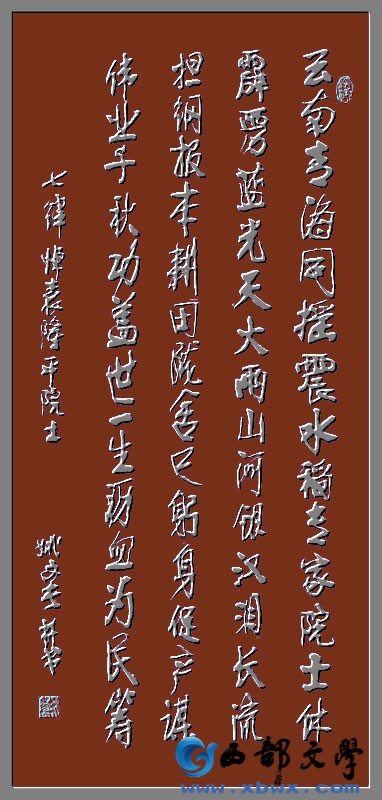 云南青海同摇震水稻专家院士休
霹雳蓝光天火雨山河银汉泪长流
担纲报本耕田陇舍己躬身促产谋
伟业千秋功盖世一生沥血为民筹
七律悼袁隆平院士
西部文学
www.xbwx.com